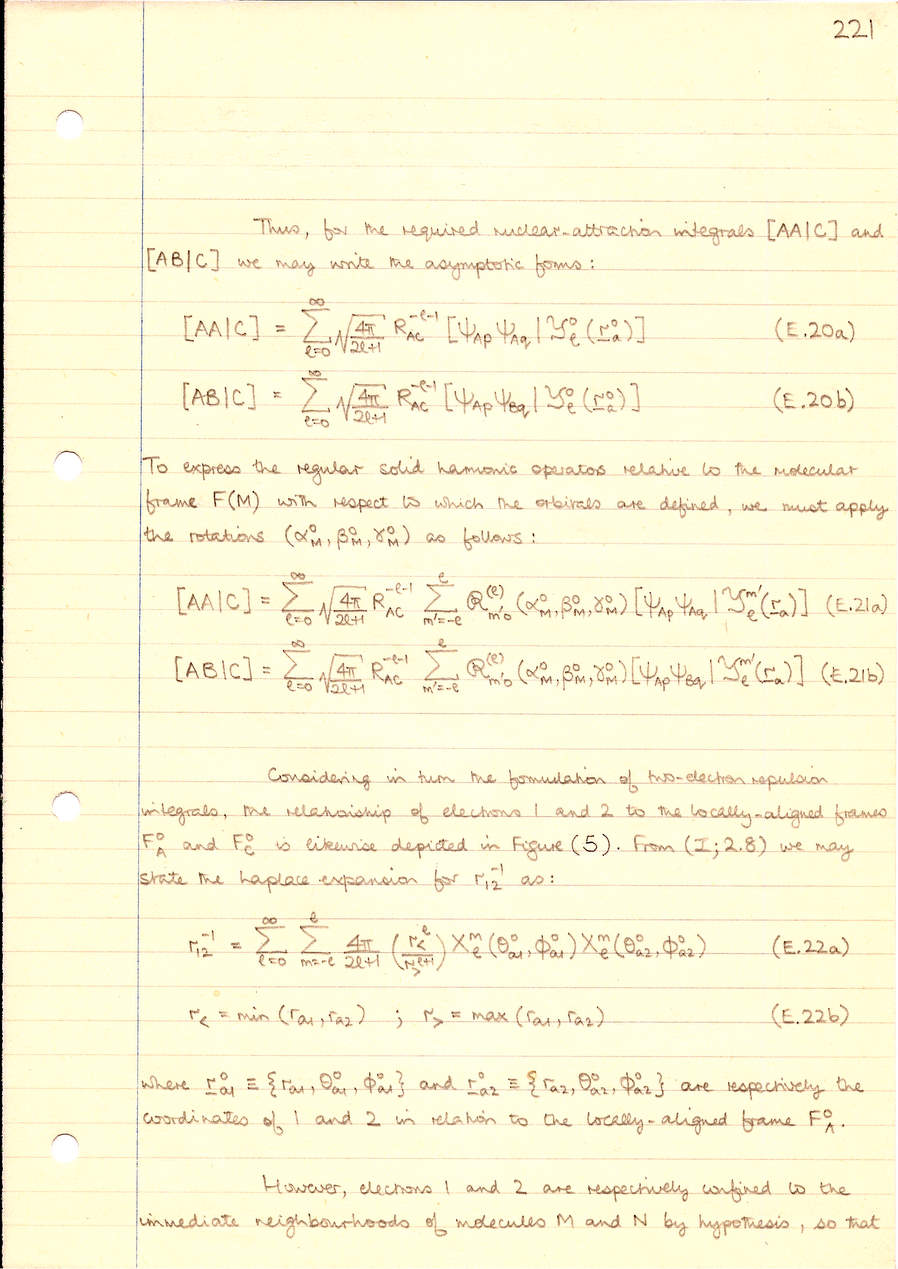 221
Thus, for the required nuclear-attraction integrals [AA|C] and
[AB|C] we may write the asymptotic forms:
[AA|C] = ∞∑ℓ=0 √(4π/2ℓ+1) R_AC^{-ℓ-1} [ψ_Ap ψ_Aq | 𝒴_ℓ^0 (r_a^0)] (E.20a)
[AB|C] = ∞∑ℓ=0 √(4π/2ℓ+1) R_AC^{-ℓ-1} [ψ_Ap ψ_Bq | 𝒴_ℓ^0 (r_a^0)] (E.20b)
To express the regular solid harmonic operators relative to the molecular
frame F(M) with respect to which the orbitals are defined, we must apply
the rotations (α_M^0, β_M^0, γ_M^0) as follows:
[AA|C] = ∞∑ℓ=0 √(4π/2ℓ+1) R_AC^{-ℓ-1} ℓ∑m'=-ℓ ℛ_{m'0}^{(ℓ)} (α_M^0, β_M^0, γ_M^0) [ψ_Ap ψ_Aq | 𝒴_ℓ^{m'} (r_a)] (E.21a)
[AB|C] = ∞∑ℓ=0 √(4π/2ℓ+1) R_AC^{-ℓ-1} ℓ∑m'=-ℓ ℛ_{m'0}^{(ℓ)} (α_M^0, β_M^0, γ_M^0) [ψ_Ap ψ_Bq | 𝒴_ℓ^{m'} (r_a)] (E.21b)
Considering in turn the formulation of two-electron repulsion
integrals, the relationship of electrons 1 and 2 to the locally-aligned frames
F_A^0 and F_C^0 is likewise depicted in Figure (5). From (I; 2.8) we may
state the Laplace expansion for r_12^{-1} as:
r_12^{-1} = ∞∑ℓ=0 ℓ∑m=-ℓ 4π/2ℓ+1 (r_<^ℓ / r_>^{ℓ+1}) X_ℓ^m (θ_a1^0, φ_a1^0) X_ℓ^m (θ_a2^0, φ_a2^0) (E.22a)
r_< = min (r_a1, r_a2) ; r_> = max (r_a1, r_a2) (E.22b)
where r_a1^0 ≡ {r_a1, θ_a1^0, φ_a1^0} and r_a2^0 ≡ {r_a2, θ_a2^0, φ_a2^0} are respectively the
coordinates of 1 and 2 in relation to the locally-aligned frame F_A^0.
However, electrons 1 and 2 are respectively confined to the
immediate neighbourhoods of molecules M and N by hypothesis, so that